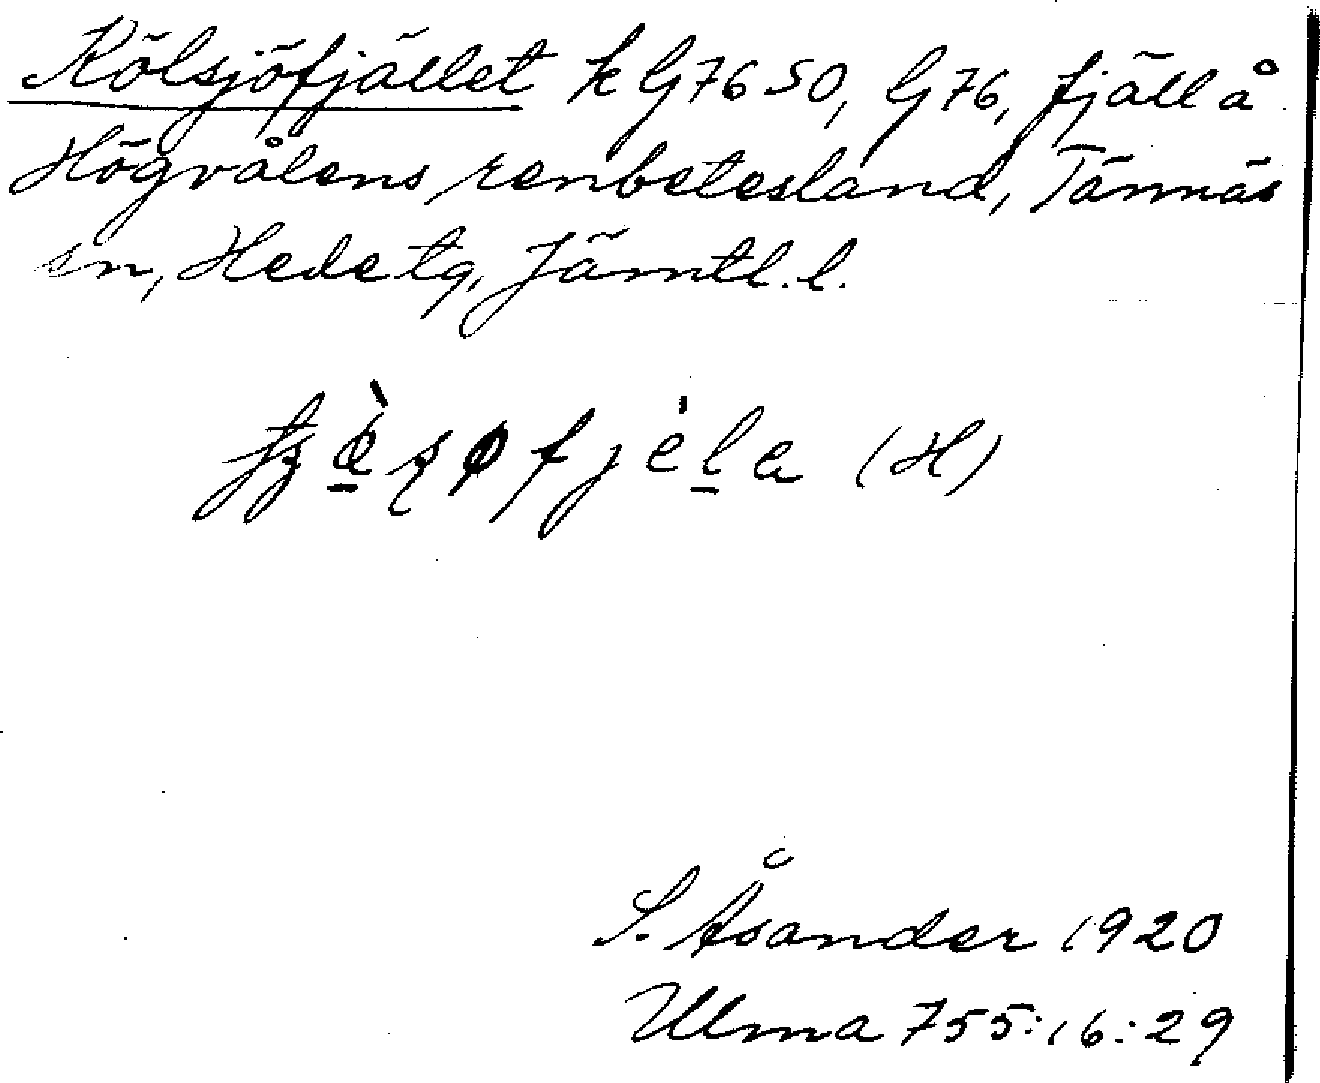 Kölsjöfjället k G7650, G76, fjäll å
Högvålens renbetesland, Tännäs
sn, Hede tg, Jämtl. l.
(H)
S. Åsander 1920
Ulma 755:16:29